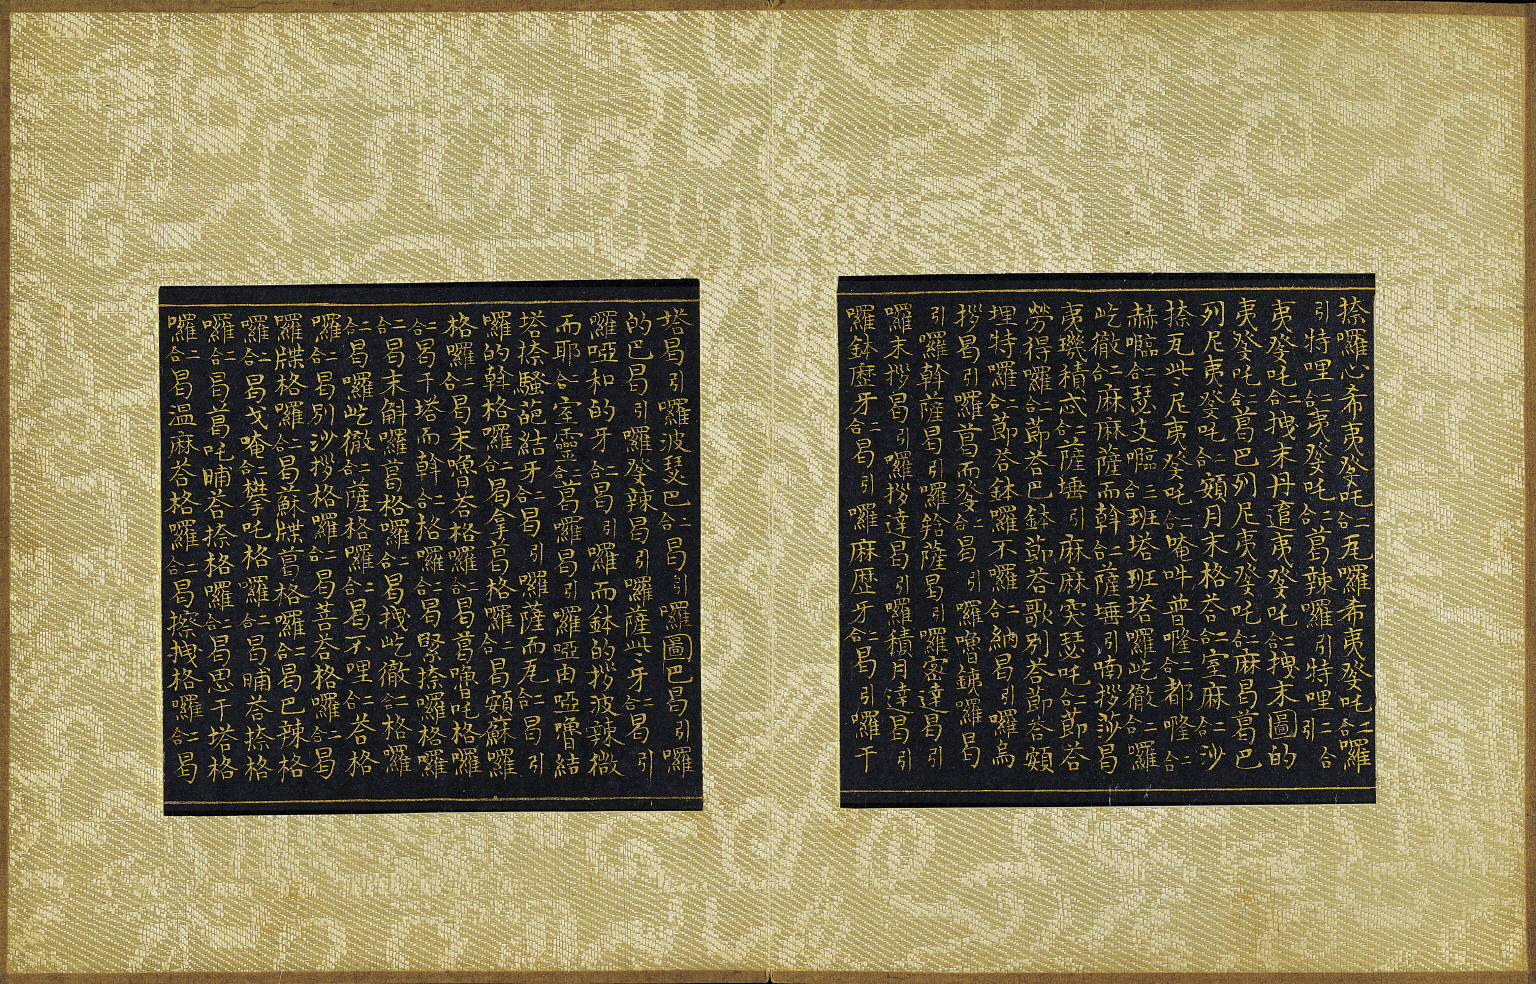 捺囉心希夷癹吒二合瓦囉希夷癹吒二合囉
引特哩二合夷癹吒二合葛辣囉引特哩二合引
夷癹吒二合拽末丹逭夷癹吒二合拽末圖的
夷癹吒二合葛巴列尼夷癹吒二合麻曷葛巴
列尼夷癹吒二合頞月末格荅二合室麻二合沙
捺瓦些尼夷癹吒二合唵吽普隆二合都隆二合
赫嘔二合瑟支嘔三合班塔班塔囉屹徹二合囉
屹徹二合麻麻薩而斡二合薩埵引喃拶莎曷
夷璣積忒二合薩埵引麻麻突瑟吒二合莭荅
勞得囉二合莭荅巴鉢莭荅歌别荅莭荅頞
埋特囉二合莭荅鉢囉不囉二合納曷引囉烏
拶曷引囉葛而癹二合曷引囉嚕銕囉曷
引囉斡薩曷引囉鎋薩曷引囉密達曷引
囉末拶曷引囉拶達曷引囉積月達曷引
囉鉢歷牙二合曷引囉麻歷牙二合曷引囉干
塔曷引囉波瑟巴二合曷引囉圖巴曷引囉
的巴曷引囉癹辣曷引囉薩些牙二合曷引
囉啞和的牙二合曷引囉而鉢的拶波辣微
而耶二合室靈二合葛囉曷引囉啞由啞嚕結
塔捺騷葩結牙二合曷引囉薩而瓦二合曷引
囉的斡格囉二合曷拿葛格囉二合曷頞蘇囉
格囉二合曷末嚕荅格囉二合曷葛嚕吒格囉
二合曷干塔而斡二合格囉二合曷緊捺囉格囉
二合曷末斛囉葛格囉二合曷拽屹徹二合格囉
二合曷囉屹徹二合薩格囉二合曷不哩二合荅格
囉二合曷别沙拶格囉二合曷菩荅格囉二合曷
囉牒格囉二合曷蘇牒葛格囉二合曷巴辣格
囉二合曷戈唵二合攀吒格囉二合曷晡荅捺格
囉二合曷葛吒晡荅捺格囉二合曷思干塔格
囉二合曷温麻荅格囉二合曷擦拽格囉二合曷